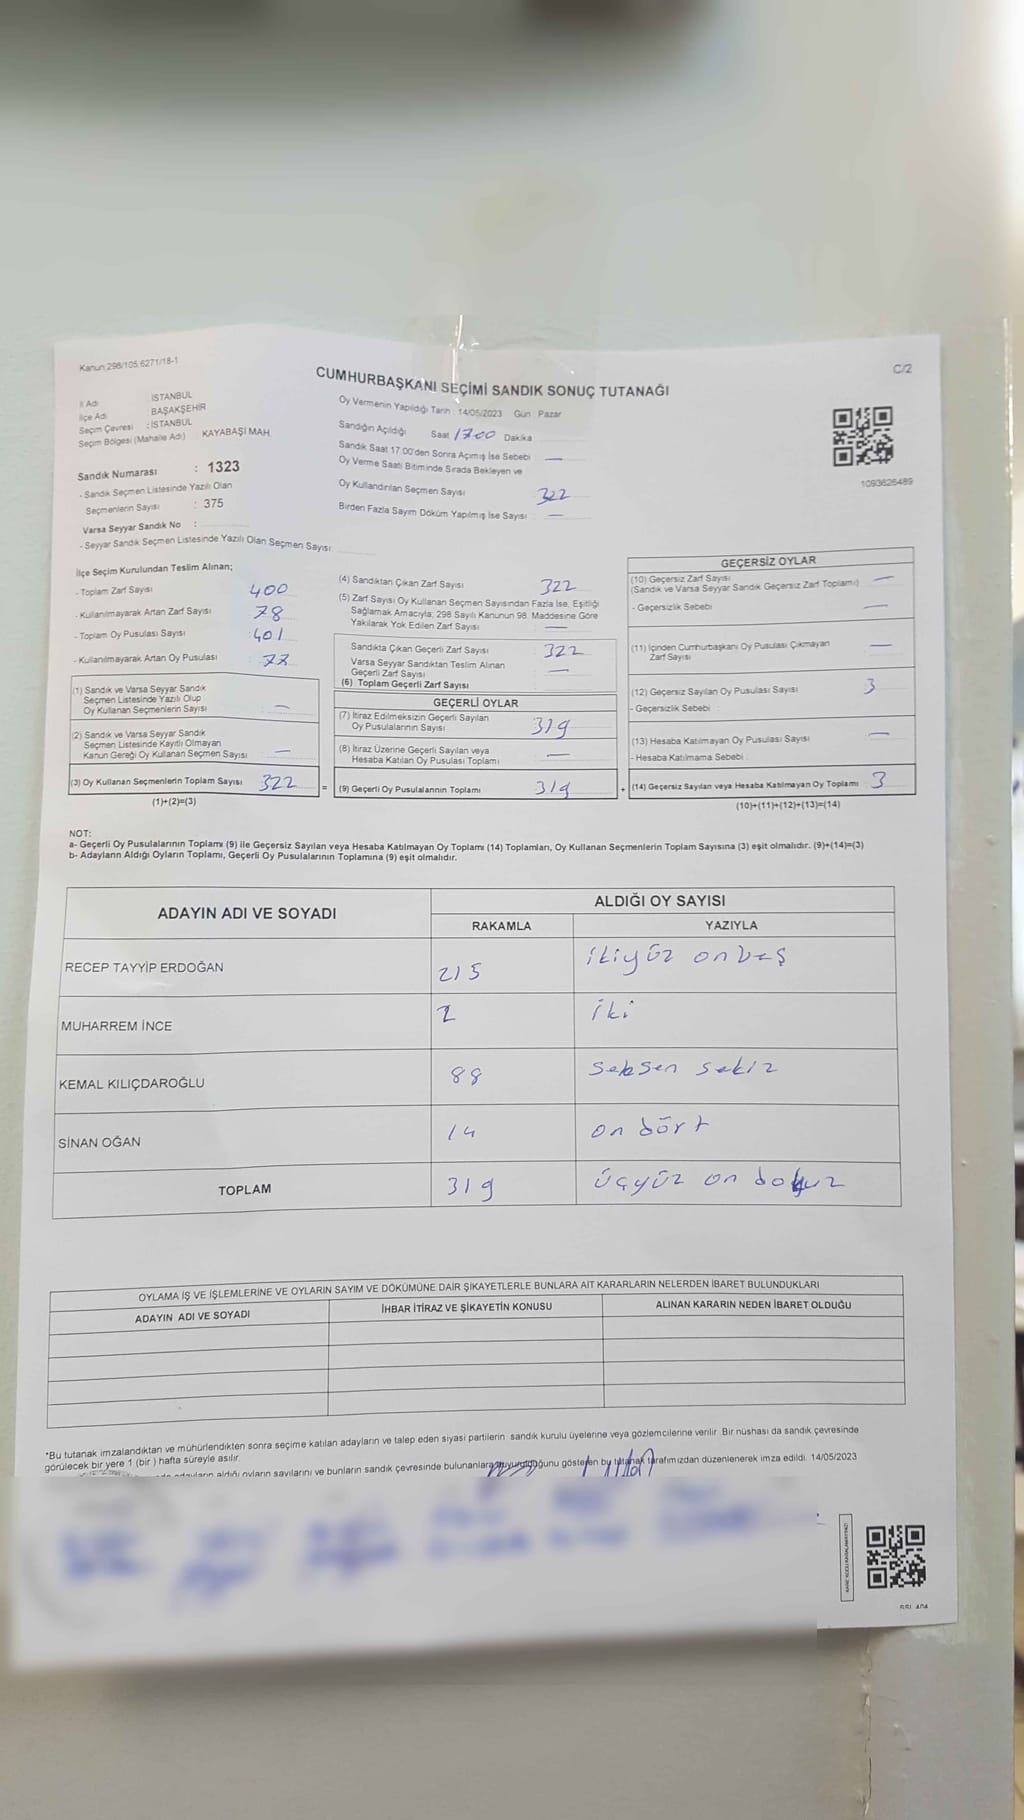 Kanun:298/105,6271/18-1
C/2
CUMHURBAŞKANI SEÇİMİ SANDIK SONUÇ TUTANAĞI
İl Adı : İSTANBUL
İlçe Adı : BAŞAKŞEHİR
Seçim Çevresi : İSTANBUL
Seçim Bölgesi (Mahalle Adı) KAYABAŞI MAH.
Sandık Numarası : 1323
- Sandık Seçmen Listesinde Yazılı Olan
Seçmenlerin Sayısı : 375
Varsa Seyyar Sandık No :
- Seyyar Sandık Seçmen Listesinde Yazılı Olan Seçmen Sayısı:
Oy Vermenin Yapıldığı Tarih : 14/05/2023 Gün : Pazar
Sandığın Açıldığı Saat 1700 Dakika
Sandık Saat 17:00'den Sonra Açımış İse Sebebi : —
Oy Verme Saati Bitiminde Sırada Bekleyen ve
Oy Kullandırılan Seçmen Sayısı 322
Birden Fazla Sayım Döküm Yapılmış İse Sayısı : —
1093626489
İlçe Seçim Kurulundan Teslim Alınan;
- Toplam Zarf Sayısı 400
- Kullanılmayarak Artan Zarf Sayısı 78
- Toplam Oy Pusulası Sayısı : 401
- Kullanılmayarak Artan Oy Pusulası : 77
(1) Sandık ve Varsa Seyyar Sandık
Seçmen Listesinde Yazılı Olup
Oy Kullanan Seçmenlerin Sayısı : —
(2) Sandık ve Varsa Seyyar Sandık
Seçmen Listesinde Kayıtlı Olmayan
Kanun Gereği Oy Kullanan Seçmen Sayısı : —
(3) Oy Kullanan Seçmenlerin Toplam Sayısı 322
(1)+(2)=(3)
=
(4) Sandıktan Çıkan Zarf Sayısı 322
(5) Zarf Sayısı Oy Kullanan Seçmen Sayısından Fazla İse, Eşitliği
Sağlamak Amacıyla; 298 Sayılı Kanunun 98. Maddesine Göre
Yakılarak Yok Edilen Zarf Sayısı : —
Sandıkta Çıkan Geçerli Zarf Sayısı : 322
Varsa Seyyar Sandıktan Teslim Alınan
Geçerli Zarf Sayısı : —
(6) Toplam Geçerli Zarf Sayısı
GEÇERLİ OYLAR
(7) İtiraz Edilmeksizin Geçerli Sayılan
Oy Pusulalarının Sayısı : 319
(8) İtiraz Üzerine Geçerli Sayılan veya
Hesaba Katılan Oy Pusulası Toplamı : —
(9) Geçerli Oy Pusulalarının Toplamı : 319
+
GEÇERSİZ OYLAR
(10) Geçersiz Zarf Sayısı
(Sandık ve Varsa Seyyar Sandık Geçersiz Zarf Toplamı) : —
- Geçersizlik Sebebi : —
(11) İçinden Cumhurbaşkanı Oy Pusulası Çıkmayan
Zarf Sayısı : —
(12) Geçersiz Sayılan Oy Pusulası Sayısı : 3
- Geçersizlik Sebebi :
(13) Hesaba Katılmayan Oy Pusulası Sayısı : —
- Hesaba Katılmama Sebebi :
(14) Geçersiz Sayılan veya Hesaba Katılmayan Oy Toplamı : 3
(10)+(11)+(12)+(13)=(14)
NOT:
a- Geçerli Oy Pusulalarının Toplamı (9) ile Geçersiz Sayılan veya Hesaba Katılmayan Oy Toplamı (14) Toplamları, Oy Kullanan Seçmenlerin Toplam Sayısına (3) eşit olmalıdır. (9)+(14)=(3)
b- Adayların Aldığı Oyların Toplamı, Geçerli Oy Pusulalarının Toplamına (9) eşit olmalıdır.
ADAYIN ADI VE SOYADI
ALDIĞI OY SAYISI
RAKAMLA YAZIYLA
RECEP TAYYİP ERDOĞAN 215 ikiyüz onbeş
MUHARREM İNCE 2 iki
KEMAL KILIÇDAROĞLU 88 seksen sekiz
SİNAN OĞAN 14 on dört
TOPLAM 319 üçyüz on dokuz
OYLAMA İŞ VE İŞLEMLERİNE VE OYLARIN SAYIM VE DÖKÜMÜNE DAİR ŞİKAYETLERLE BUNLARA AİT KARARLARIN NELERDEN İBARET BULUNDUKLARI
ADAYIN ADI VE SOYADI İHBAR İTİRAZ VE ŞİKAYETİN KONUSU ALINAN KARARIN NEDEN İBARET OLDUĞU
*Bu tutanak imzalandıktan ve mühürlendikten sonra seçime katılan adayların ve talep eden siyasi partilerin sandık kurulu üyelerine veya gözlemcilerine verilir. Bir nüshası da sandık çevresinde
görülecek bir yere 1 (bir) hafta süreyle asılır.
aldığı oyların sayılarını ve bunların sandık çevresinde bulunanlara duyurulduğunu gösteren bu tutanak tarafımızdan düzenlenerek imza edildi. 14/05/2023